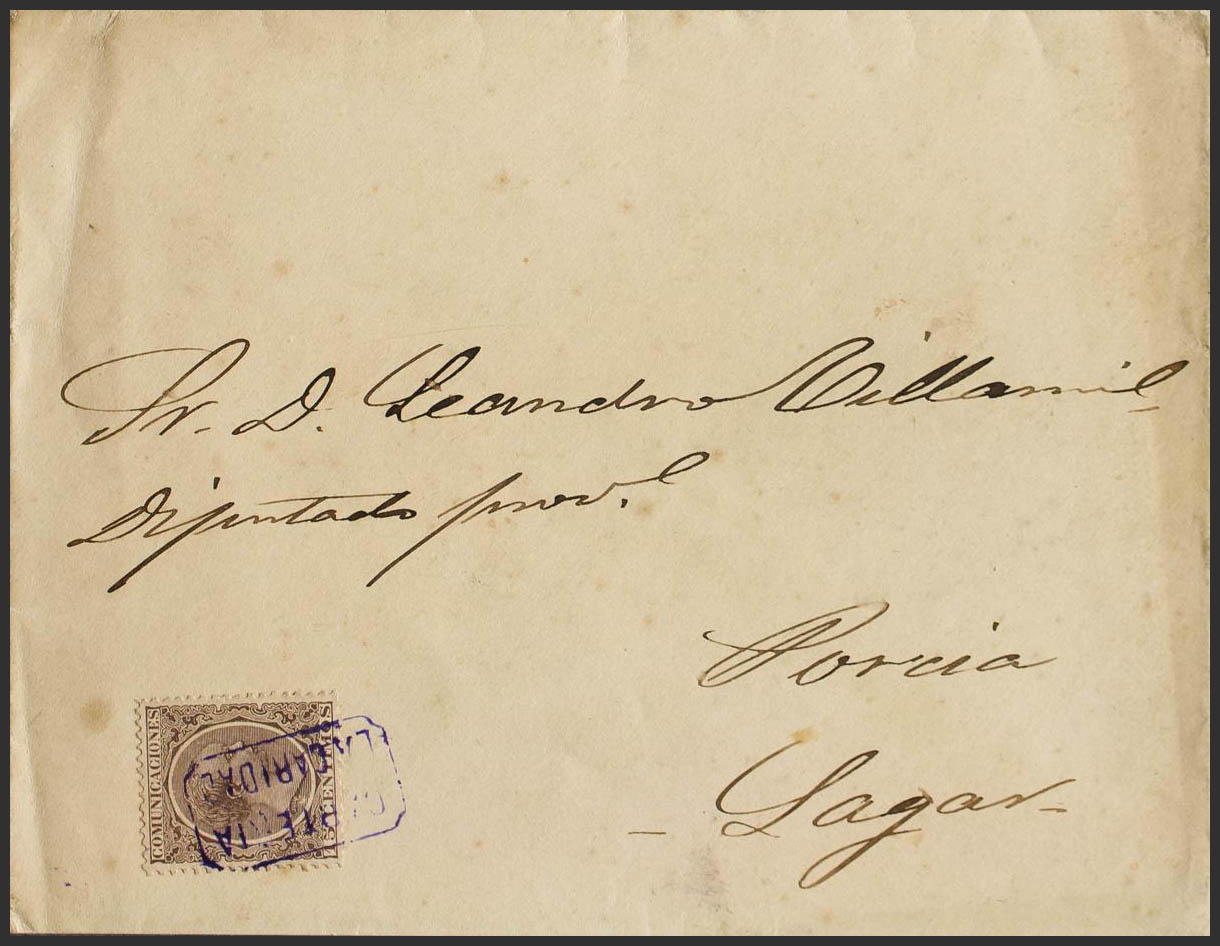 Sr. D. Leandro Villamil
Diputado prov.l
Porcia
- Lagar -
COMUNICACIONES
CARTERIA
LA CARIDAD